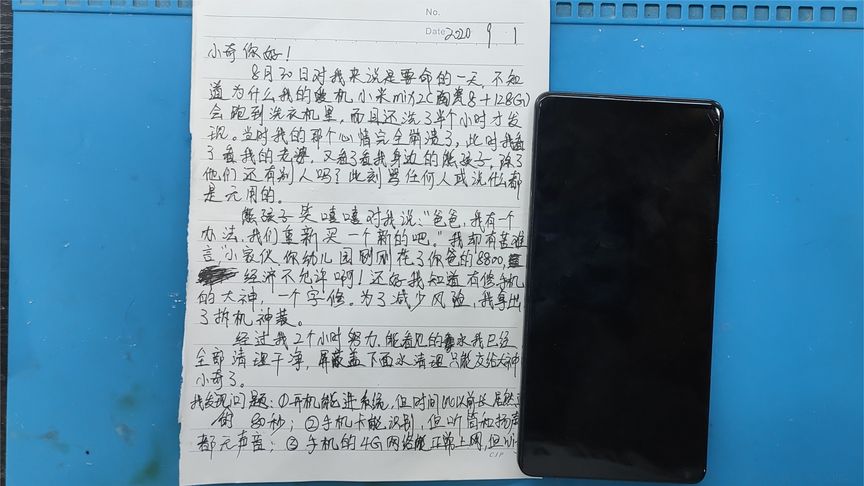 No.
Date 2020 9 1
小奇你好！
8月30日对我来说是要命的一天，不知
道为什么我的手机小米mix2C陶瓷8+128G)
会跑到洗衣机里，而且还洗了半个小时才发
现。当时我的那个心情完全崩溃了，此时我看
了看我的老婆，又看了看我身边的熊孩子，除了
他们还有别人吗？此刻骂任何人或说什么都
是无用的。
熊孩子笑嘻嘻对我说："爸爸，我有一个
办法，我们重新买一个新的吧。"我却有苦难
言，"小家伙，你幼儿园刚刚花了你爸的8800,
经济不允许啊！还好我知道有修手机
的大神，一个字修。为了减少风险，我拿出
了拆机神装。
经过我2个小时努力，能看见的水我已经
全部清理干净，屏蔽盖下面水清理只能交给大神
小奇了。
我发现问题：①开机能进系统，但时间比以前长居然
80秒；②手机卡能识别，但听筒和扬声
都无声音；③手机的4G网络能正常上网，但wi